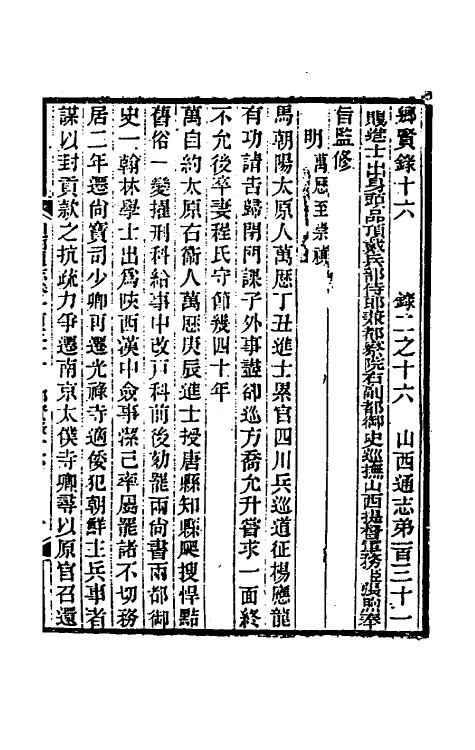 鄉賢錄十六 錄二之十六 山西通志第一百三十一
賜進士出身頭品頂戴兵部侍郎兼都察院右副都御史巡撫山西提督軍務張煦奉
旨監修
明萬厯至崇禎
馬朝陽太原人萬厯丁丑進士累官四川兵巡道征楊應龍
有功請告歸閉門課子外事盡卻巡方喬允升嘗求一面終
不允後卒妻程氏守節幾四十年
萬自約太原右衞人萬厯庚辰進士授唐縣知縣爬搜悍黠
舊俗一變擢刑科給事中改戸科前後劾罷兩尚書兩都御
史一翰林學士出爲陝西漢中僉事潔己率屬罷諸不切務
居二年遷尚寶司少卿再遷光祿寺適倭犯朝鮮主兵事者
謀以封貢款之抗疏力爭遷南京太僕寺卿尋以原官召還